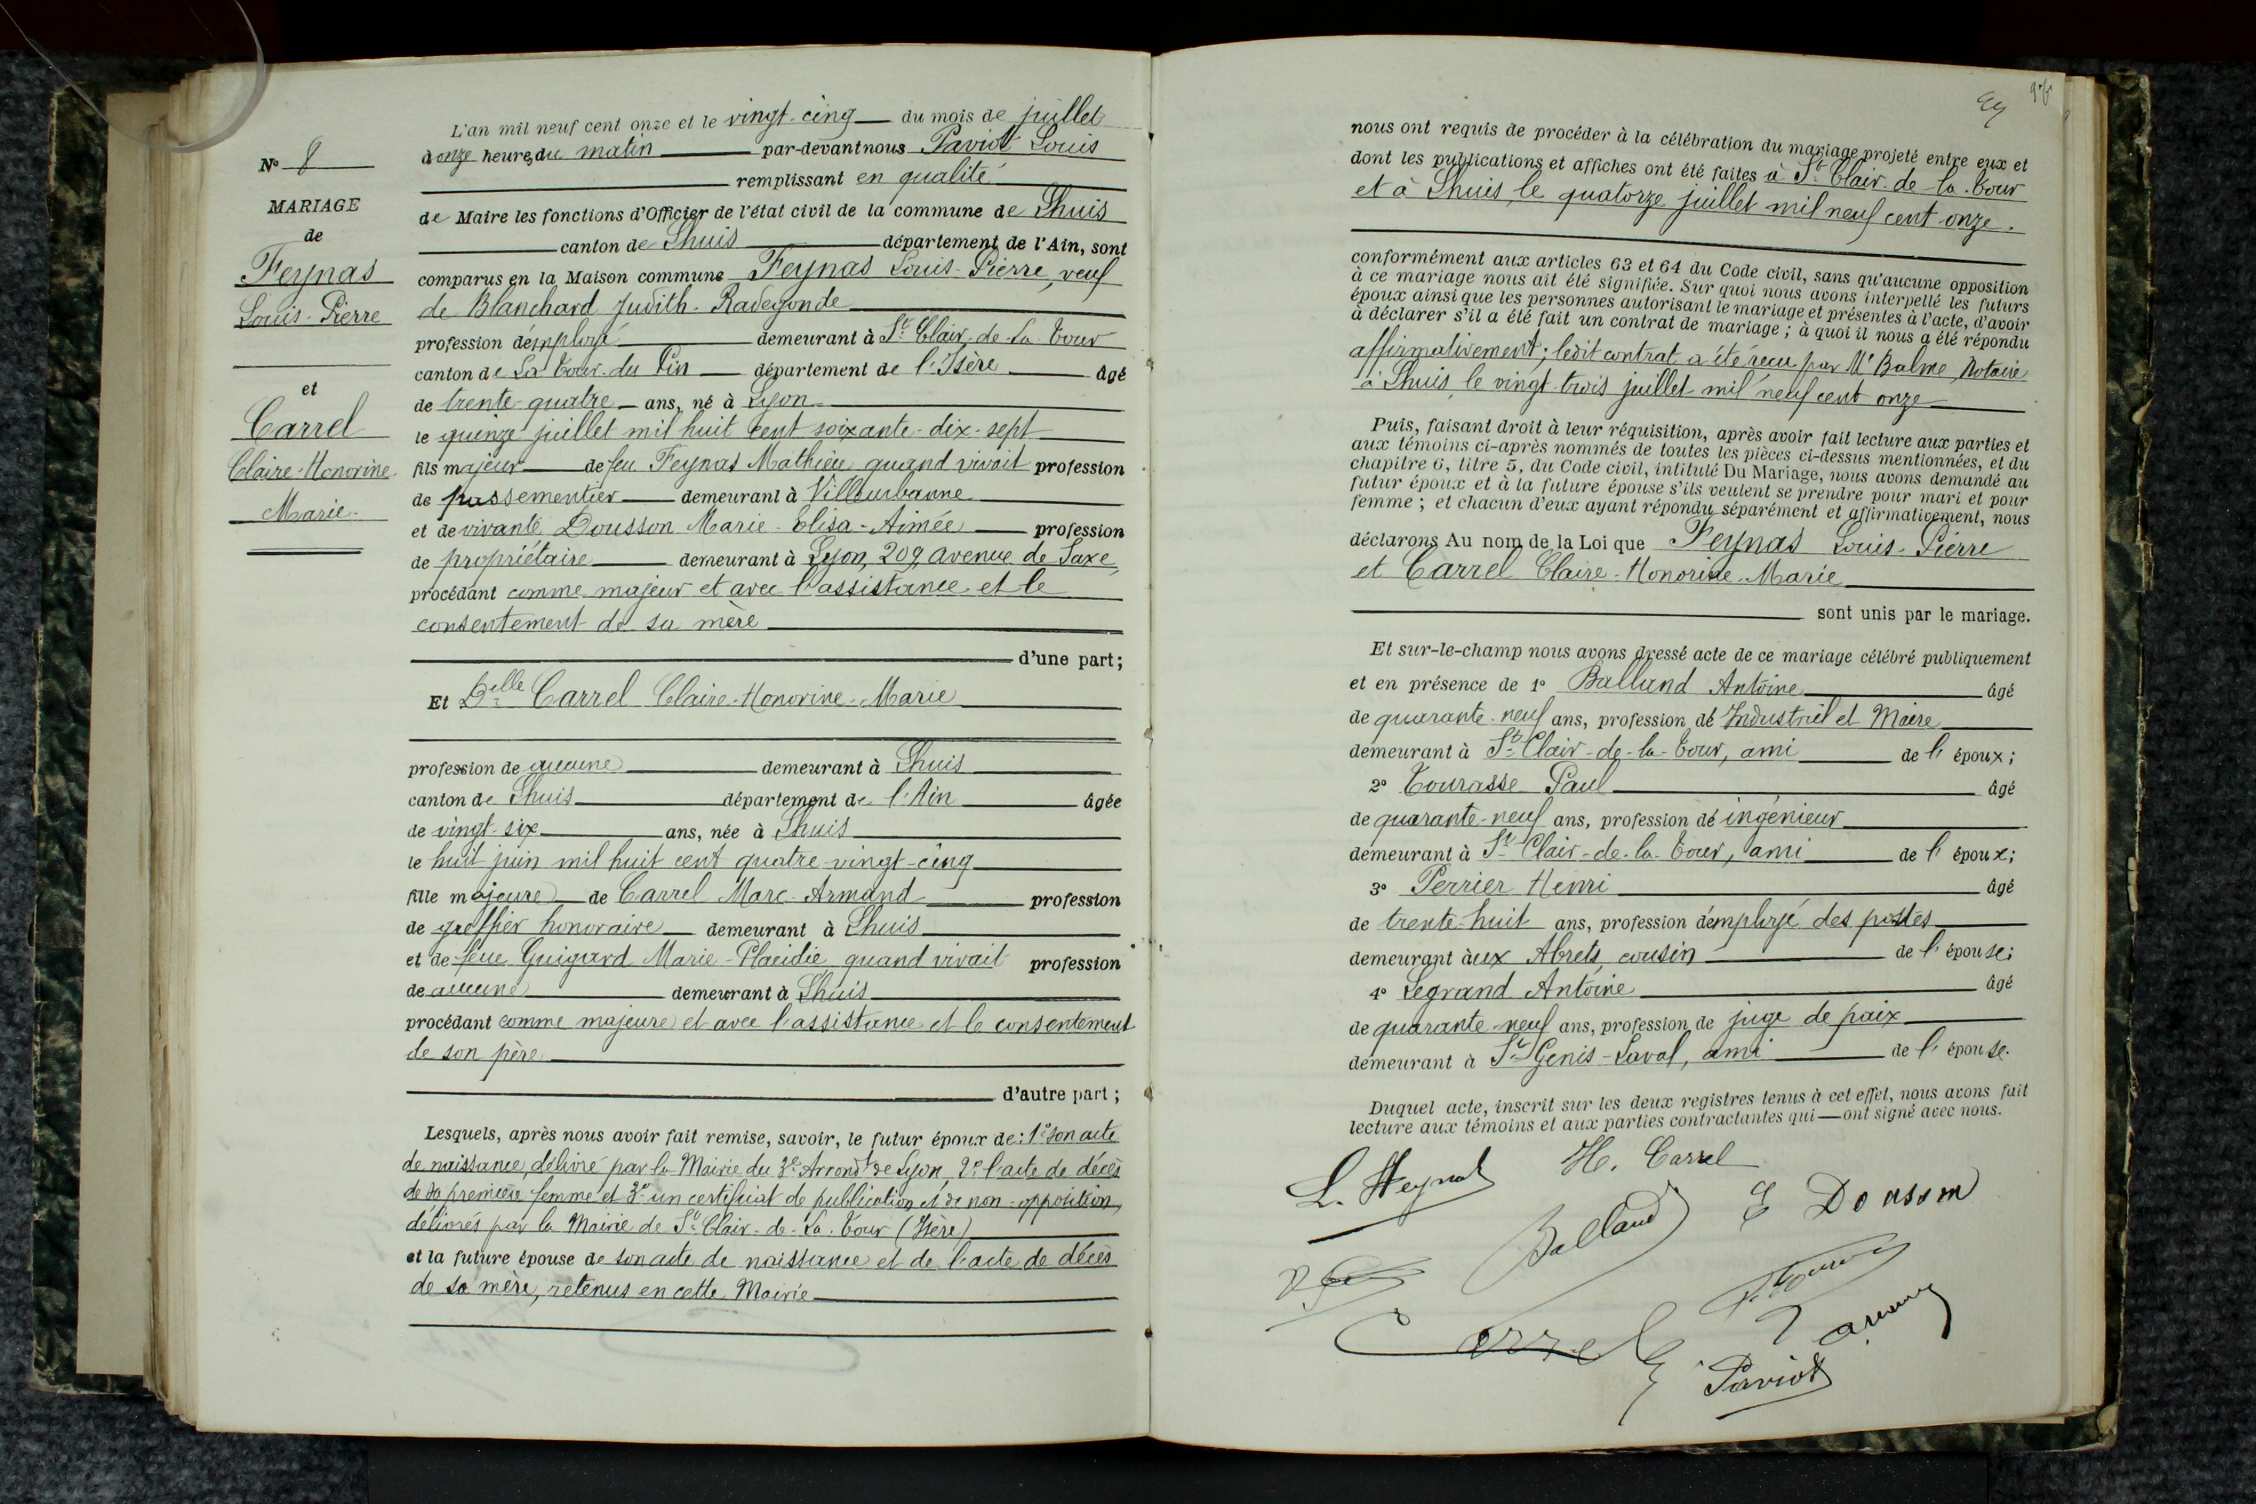 N° 8
MARIAGE
de
Feynas
Louis-Pierre
et
Carrel
Claire-Honorine
Marie.
L'an mil neuf cent onze et le vingt-cinq du mois de juillet
à onze heures du matin par-devant nous Paviot Louis
remplissant en qualité
de Maire les fonctions d'Officier de l'état civil de la commune de Lhuis
canton de Lhuis département de l'Ain, sont
comparus en la Maison commune Feynas Louis-Pierre, veuf
de Blanchard Judith-Radegonde
profession d'employé demeurant à St Clair-de-La-Tour
canton de La Tour-du-Pin département de l'Isère âgé
de trente-quatre ans, né à Lyon
le quinze juillet mil huit cent soixante-dix-sept
fils majeur de feu Feynas Mathieu quand vivait profession
de passementier demeurant à Villeurbanne
et de vivante Dousson Marie-Elisa-Aimée profession
de propriétaire demeurant à Lyon, 209, avenue de Saxe,
procédant comme majeur et avec l'assistance et le
consentement de sa mère
d'une part;
Et Delle Carrel Claire-Honorine-Marie
profession de aucune demeurant à Lhuis
canton de Lhuis département de l'Ain âgée
de vingt-six ans, née à Lhuis
le huit juin mil huit cent quatre-vingt-cinq
fille majeure de Carrel Marc-Armand profession
de greffier honoraire demeurant à Lhuis
et de feue Guigard Marie-Placidie quand vivait profession
de aucune demeurant à Lhuis
procédant comme majeure et avec l'assistance et le consentement
de son père
d'autre part;
Lesquels, après nous avoir fait remise, savoir, le futur époux de: 1° son acte
de naissance, délivré par la Mairie du 3e Arrondt de Lyon, 2° l'acte de décès
de sa première femme et 3° un certificat de publication et de non-opposition,
délivrés par la Mairie de St Clair-de-La-Tour (Isère)
et la future épouse de son acte de naissance et de l'acte de décès
de sa mère, retenus en cette Mairie
nous ont requis de procéder à la célébration du mariage projeté entre eux et
dont les publications et affiches ont été faites à St Clair-de-la-Tour
et à Lhuis, le quatorze juillet mil neuf cent onze.
conformément aux articles 63 et 64 du Code civil, sans qu'aucune opposition
à ce mariage nous ait été signifiée. Sur quoi nous avons interpellé les futurs
époux ainsi que les personnes autorisant le mariage et présentes à l'acte, d'avoir
à déclarer s'il a été fait un contrat de mariage; à quoi il nous a été répondu
affirmativement; ledit contrat a été reçu par Me Balme, Notaire
à Lhuis, le vingt-trois juillet mil neuf cent onze
Puis, faisant droit à leur réquisition, après avoir fait lecture aux parties et
aux témoins ci-après nommés de toutes les pièces ci-dessus mentionnées, et du
chapitre 6, titre 5, du Code civil, intitulé Du Mariage, nous avons demandé au
futur époux et à la future épouse s'ils veulent se prendre pour mari et pour
femme; et chacun d'eux ayant répondu séparément et affirmativement, nous
déclarons Au nom de la Loi que Feynas Louis-Pierre
et Carrel Claire-Honorine-Marie
sont unis par le mariage.
Et sur-le-champ nous avons dressé acte de ce mariage célébré publiquement
et en présence de 1° Balland Antoine âgé
de quarante-neuf ans, profession de Industriel et Maire
demeurant à St Clair-de-la-Tour, ami de l'époux;
2° Tourasse Paul âgé
de quarante-neuf ans, profession de ingénieur
demeurant à St Clair-de-la-Tour, ami de l'époux;
3° Perrier Henri âgé
de trente-huit ans, profession d'employé des postes
demeurant aux Abrets, cousin de l'épouse;
4° Legrand Antoine âgé
de quarante-neuf ans, profession de juge de paix
demeurant à St Genis-Laval, ami de l'épouse.
Duquel acte, inscrit sur les deux registres tenus à cet effet, nous avons fait
lecture aux témoins et aux parties contractantes qui ont signé avec nous.
L. Feynas H. Carrel
Balland E Dousson
Carrel
Paviot